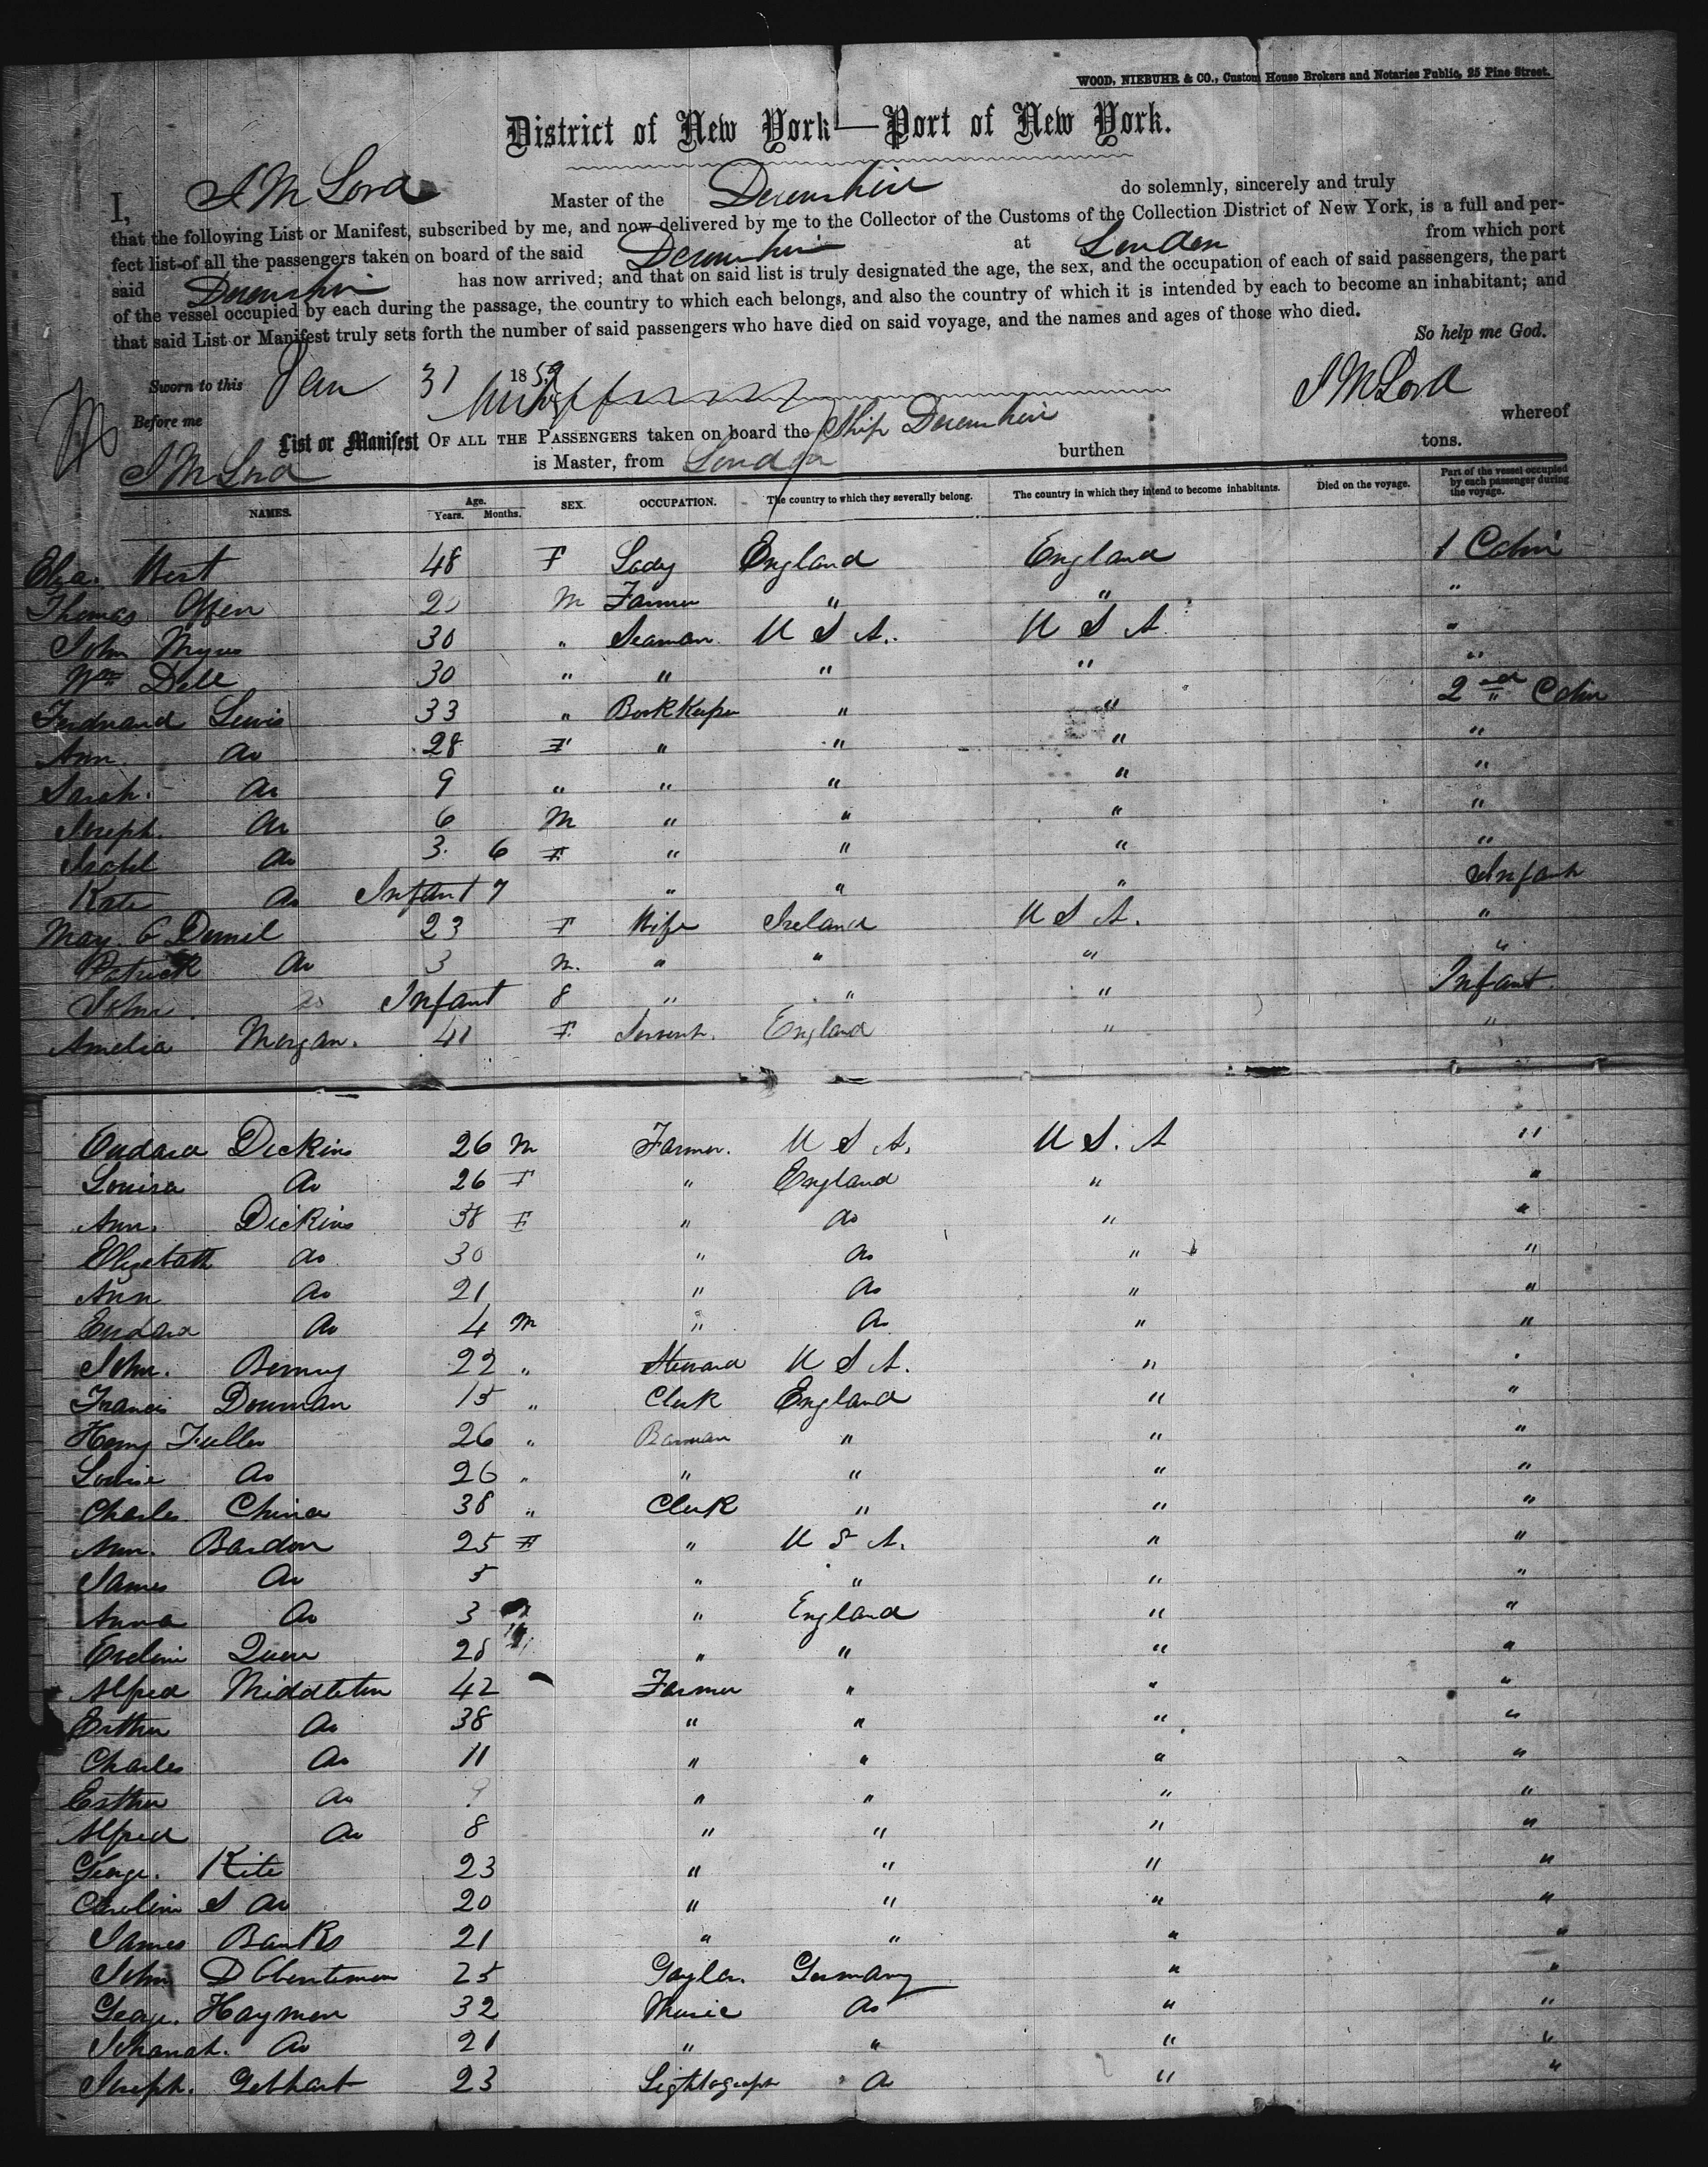 WOOD, NIEBUHR & CO., Custom House Brokers and Notaries Public, 25 Pine Street.
District of New York—Port of New York.
I, J M Lord Master of the Devonshire do solemnly, sincerely and truly
that the following List or Manifest, subscribed by me, and now delivered by me to the Collector of the Customs of the Collection District of New York, is a full and per-
fect list of all the passengers taken on board of the said Devonshire at London from which port
said Devonshire has now arrived; and that on said list is truly designated the age, the sex, and the occupation of each of said passengers, the part
of the vessel occupied by each during the passage, the country to which each belongs, and also the country of which it is intended by each to become an inhabitant; and
that said List or Manifest truly sets forth the number of said passengers who have died on said voyage, and the names and ages of those who died.
So help me God.
Sworn to this Jan 31 1859 J M Lord
Before me
List or Manifest OF ALL THE PASSENGERS taken on board the Ship Devonshire whereof
J M Lord is Master, from London burthen tons.
NAMES. Age. Years. Months. SEX. OCCUPATION. The country to which they severally belong. The country in which they intend to become inhabitants. Died on the voyage. Part of the vessel occupied by each passenger during the voyage.
Eliza. West 48 F Lady England England 1 Cabin
Thomas Offen 20 M Farmer " " "
John Myers 30 " Seaman U S A. U S A "
Wm Dell 30 " " " " "
Ferdinand Lewis 33 " Bookkeeper " " 2nd Cabin
Ann Do 28 F " " " "
Sarah Do 9 " " " " "
Joseph Do 6 M " " " "
Isabel Do 3 6 F " " " "
Kate Do Infant 7 " " " Infant
May 23 F Wife Ireland U S A. "
Patrick Do 3 M. " " " "
John Do Infant 8 " " " Infant
Amelia Morgan. 41 F Servant. England " "
Dickins 26 M Farmer. U S A. U S. A "
Louisa Do 26 F " England " "
Ann. Dickins 38 F " Do " "
Elizebath Do 30 " Do " "
Ann Do 21 " Do " "
Do 4 M " Do " "
John. 22 " Steward U S A. " "
Francis Dowman 15 " Clerk England " "
Henry Fuller 26 " Barman " " "
Louise Do 26 " " " " "
Charles China 38 " Clerk " " "
Ann. Bardon 25 F " U S A. " "
James Do 5 " " " "
Anna Do 3 " England " "
Evelin 28 " " " "
Alfred Middleton 42 Farmer " " "
Esther Do 38 " " " "
Charles Do 11 " " " "
Esther Do 9 " " " "
Alfred Do 8 " " " "
George. Kite 23 " " " "
Caroline S Do 20 " " " "
James Banks 21 " " " "
John D 25 Germany " "
George. Haymen 32 Music Do " "
Do 21 " " " "
Joseph. Gebhart 23 Lightograph Do " "